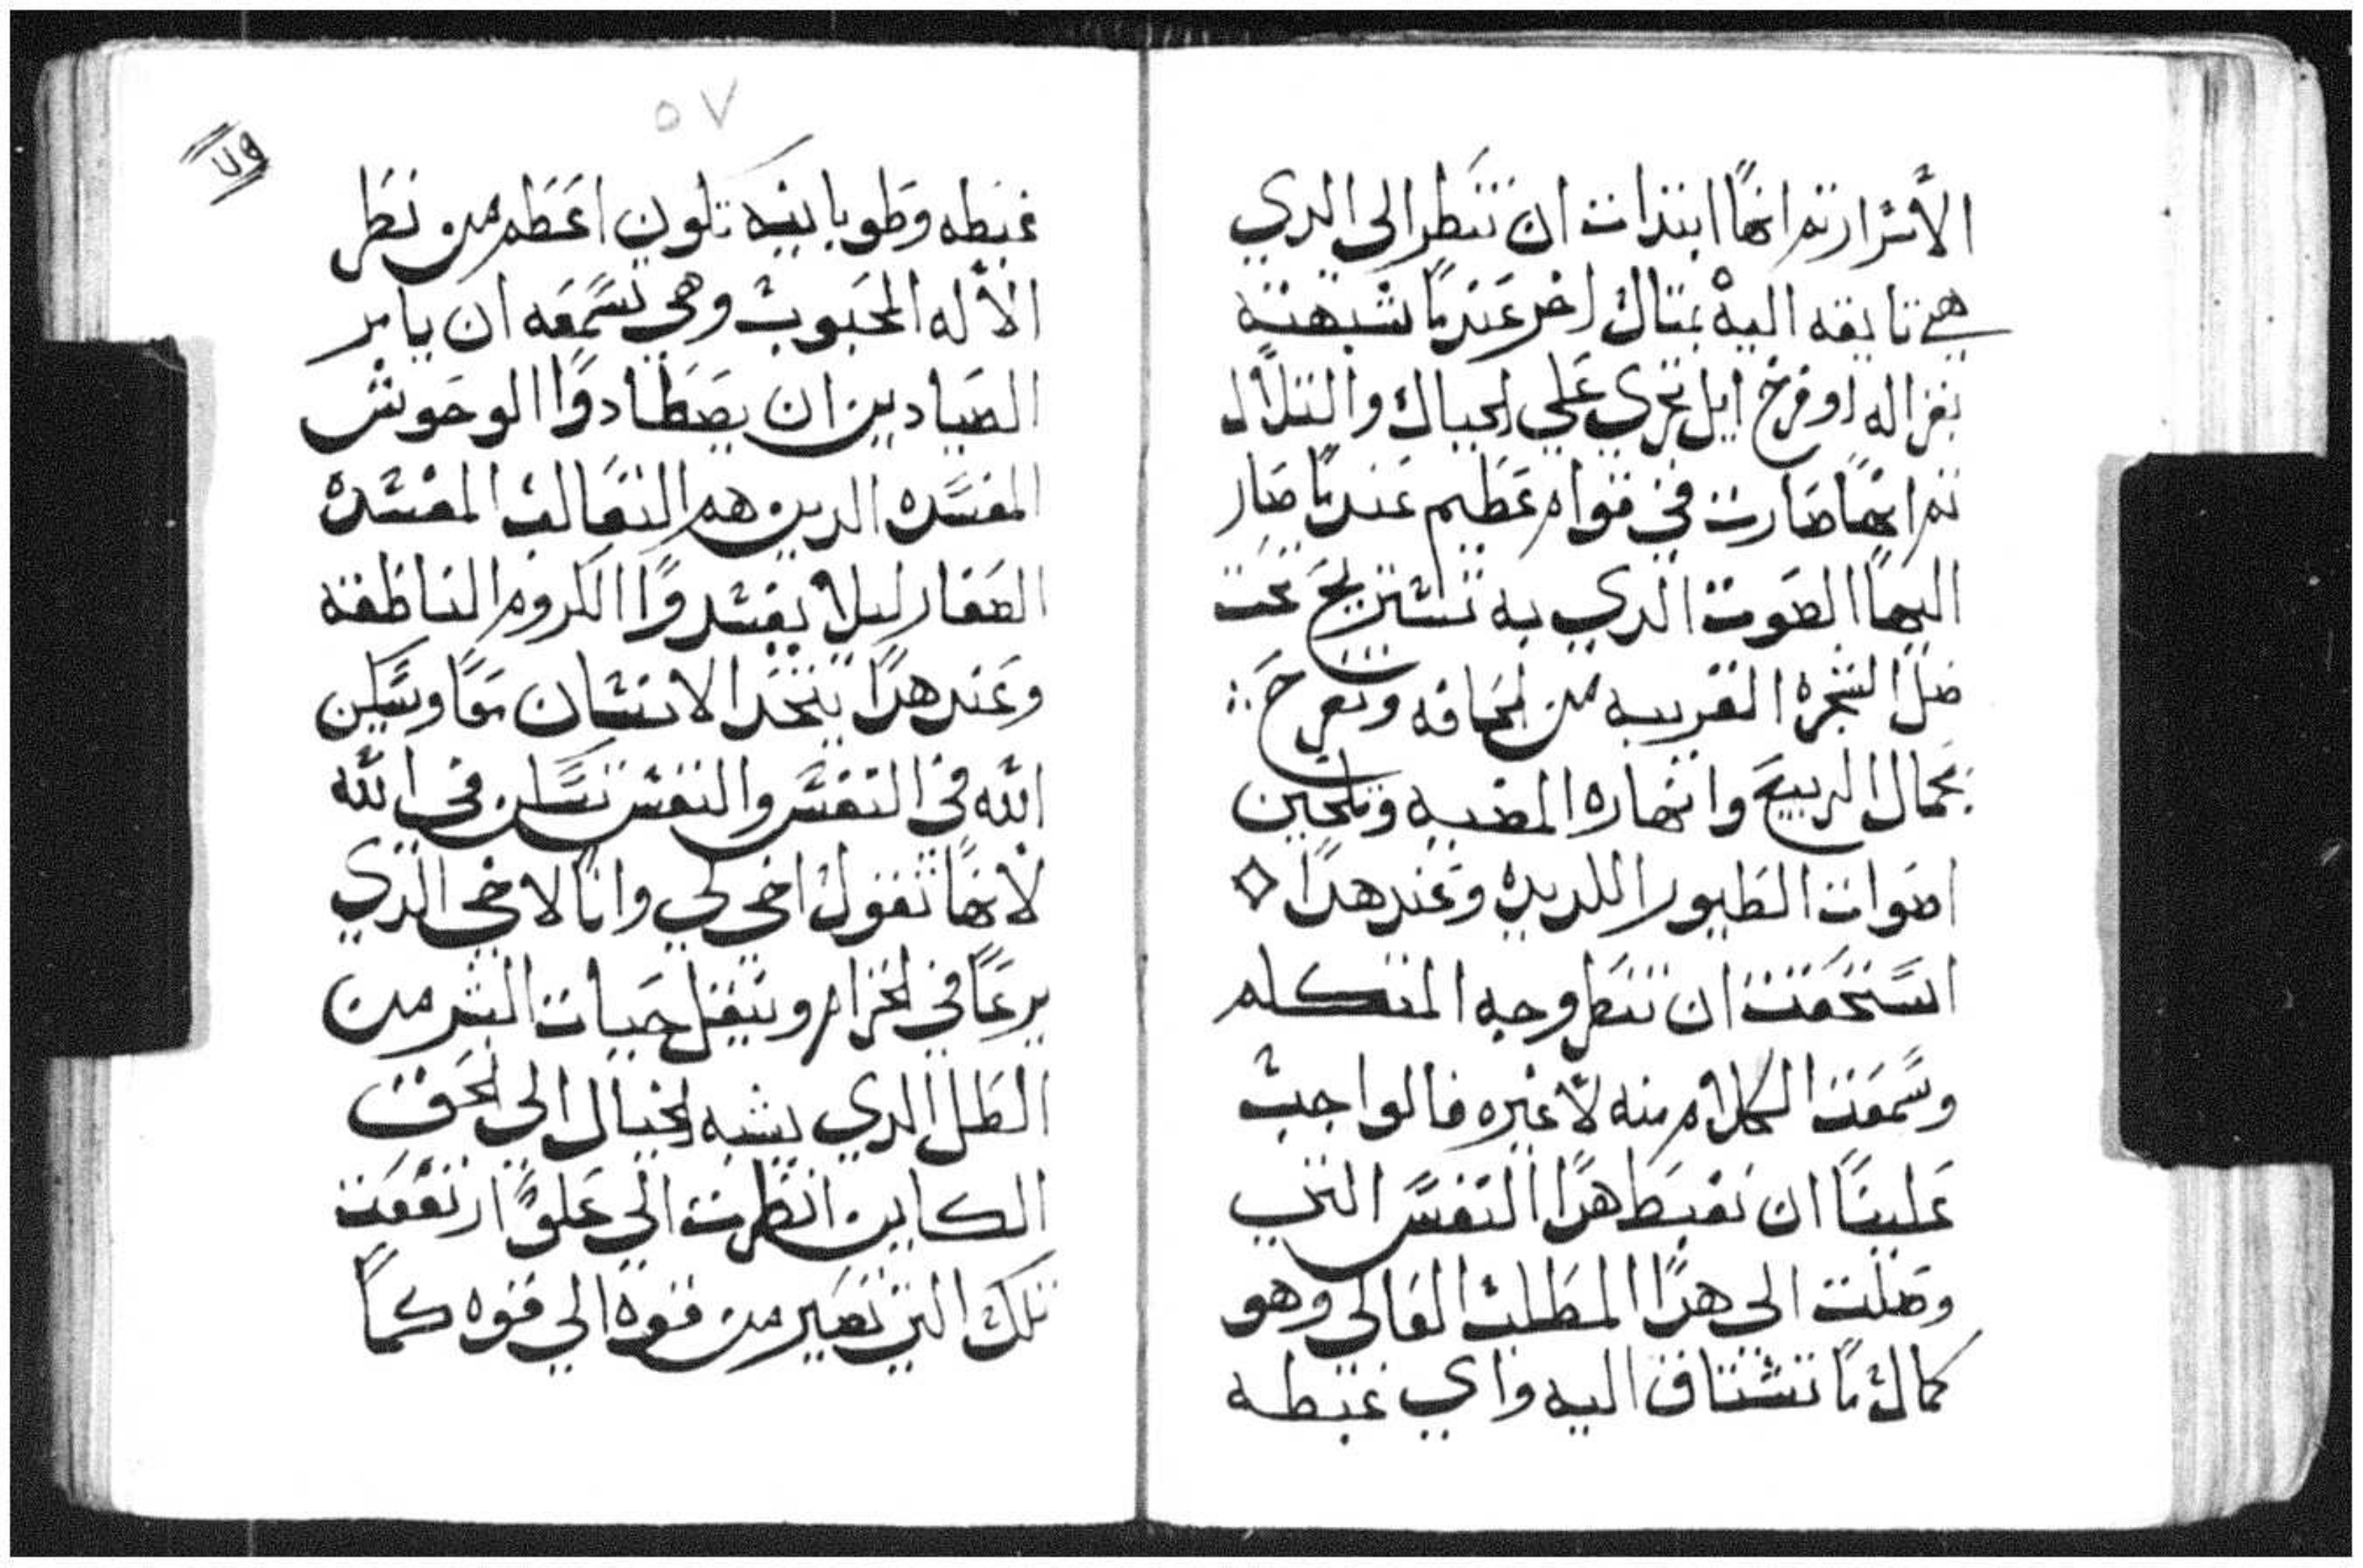 الأشرار تم انها ابتدات ان تنظر الى الدي
هي تايقه اليه بمتال اخر عندما شبهته
بغزاله او فرخ ايل تجري علي الجبال والتلال
تم انها صارت في قوام عظيم عندما صار
اليها الصوت الدي به تستريح تحت
ضل الشجره القريبه من الحافه وتفرح
بجمال الربيع وانهاره المضيه وتلحين
اصوات الطيور اللديده وعند هدا
استحقت ان تنظر وجه المتكلم
وسمعت الكلام منه لا غيره فالواجب
علينا ان نغبط هدا النفس التي
وصلت الى هدا المطلب العالي وهو
كمال ما تشتاق اليه واي غبطه
٥٧
غبطه وطوبانيه تكون اعظم من نظر
الاله المحبوب وهي تسمعه ان يامر
الصيادين ان يصطادوا الوحوش
المفسده الدين هم الثعالب المفسده
الصغار ليلا يفسدوا الكروم الناطقه
وعند هدا يتحد الانسان معا ويسكن
الله في النفس والنفس تسكن في الله
لانها تقول اخي لي وانا لاخي الدي
يرعا في الخزام وينقل حيات البشر من
الظل الدي يشبه الخيال الي الحق
الكاين انظرت الي علو ارتفعت
تلك التي تصير من قوه الي قوه كما